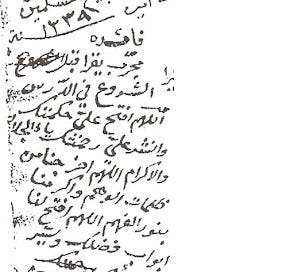 المسلمين
سنة ١٣٣٩
فائدة
مجرب يقرأ قبل
الشروع في الدرس
اللهم افتح علي حكمتك
وانشر علي رحمتك يا ذا الجلال
والاكرام اللهم اخرجنا من
ظلمات الوهم واكرمنا
بنور الفهم اللهم افتح لنا
ابواب فضلك ويسر